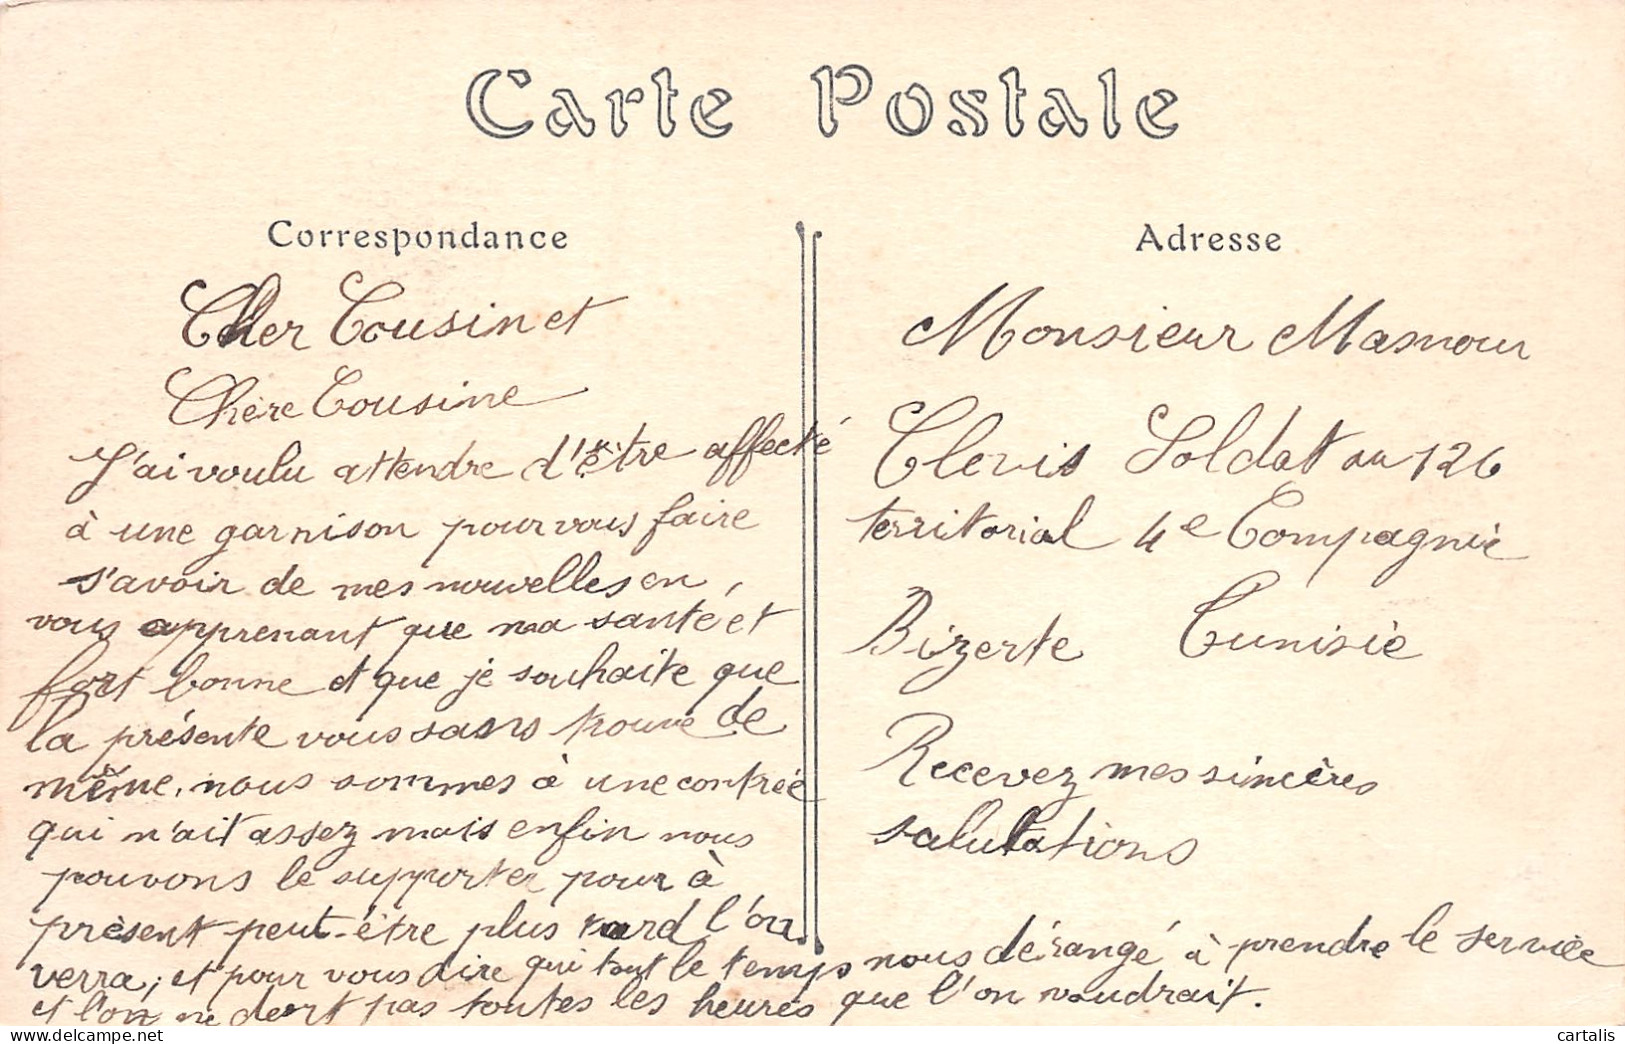 Carte Postale
Correspondance
Cher Cousin et
Chère Cousine
J'ai voulu attendre d'être affecté
à une garnison pour vous faire
s'avoir de mes nouvelles en
vous apprenant que ma santé et
fort bonne et que je souhaite que
la présente vous trouve de
même, nous sommes à une contrée
qui n'ait assez mais enfin nous
pouvons le supporter pour à
présent peut-être plus tard l'on
verra, et pour vous dire qui tout le temps nous dérangé à prendre le service
et l'on ne dort pas toutes les heures que l'on voudrait.
Adresse
Monsieur Masnour
Clovis Soldat au 126
territorial 4e Compagnie
Bizerte Tunisie
Recevez mes sincères
salutations
cartalis
www.delcampe.net